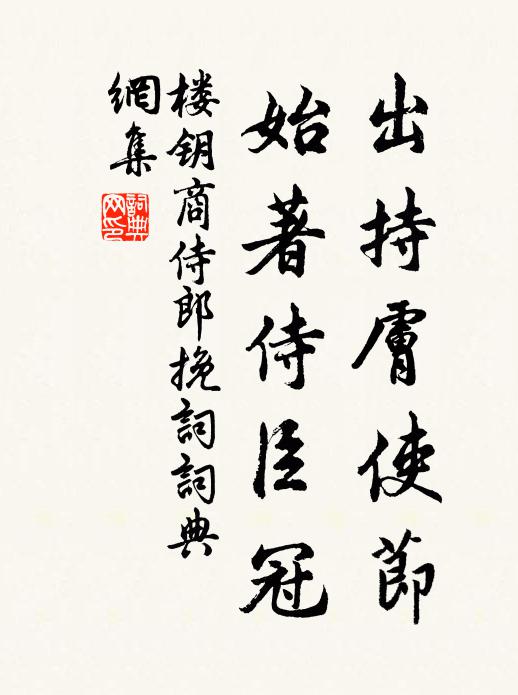 出持膚使節
始著侍臣冠
楼钥商侍郎挽詞詞典
網集
詞典
网印